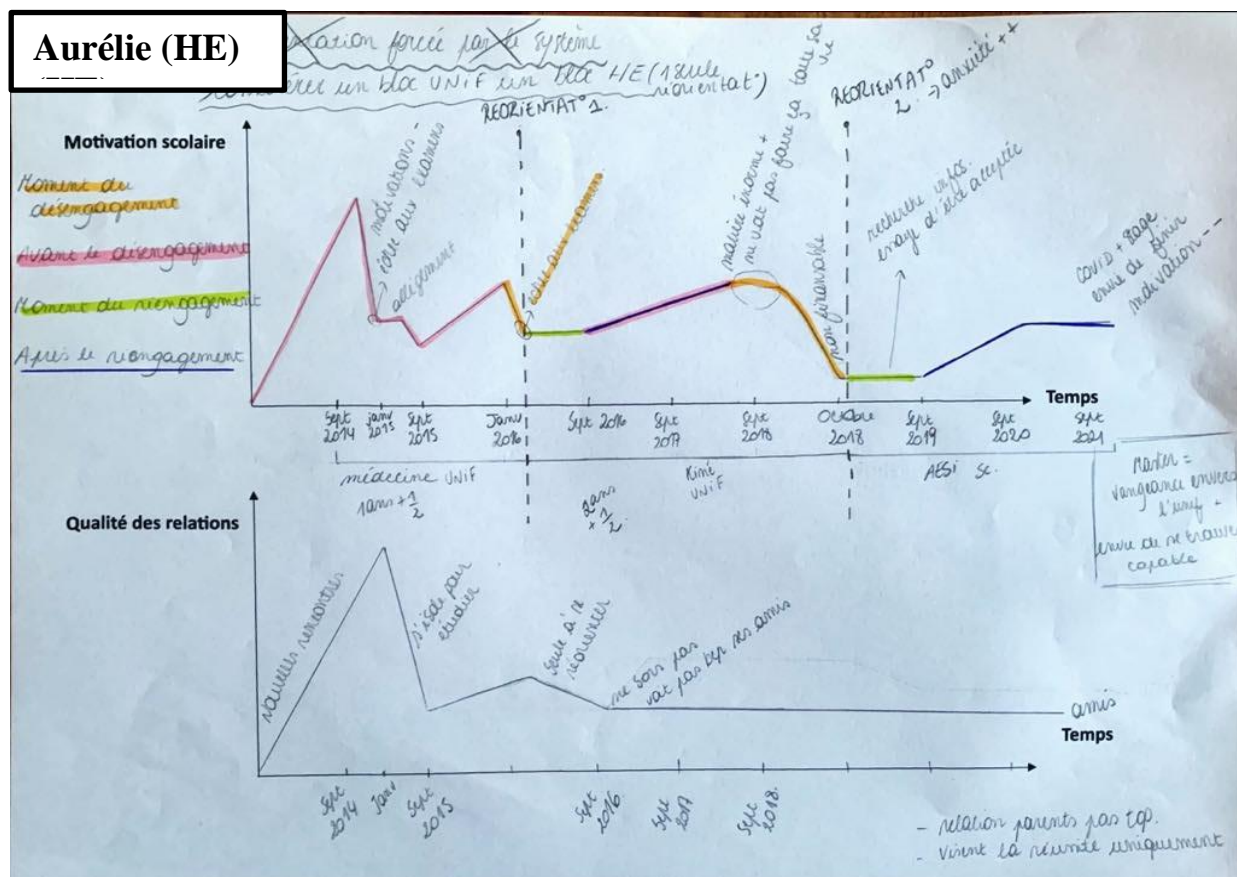 Aurélie (HE)
forcée par le système
un bloc UNIF un bloc HE (1 seule
réorientat°)
REORIENTAT° 1.
REORIENTAT°
2. → anxiété ++
Motivation scolaire
Moment du
désengagement
Avant le désengagement
Moment du réengagement
Après le réengagement
motivations -
échec aux examens
allègement
échec aux examens
matière énorme +
ne voit pas faire ça toute sa
vie
non finançable
recherche infos.
essaye d'être acceptée
COVID + stage
envie de finir
motivation --
Temps
Sept
2014
janv
2015
Sept
2015
Janv
2016
Sept 2016
Sept
2017
Sept
2018
Octobre
2018
Sept
2019
Sept
2020
Sept
2021
médecine UNIF
1ans + 1/2
2ans
+ 1/2.
Kiné
UNIF
AESI sc.
Master =
vangeance envers
l'unif +
envie de se trouver
capable
Qualité des relations
Nouvelles rencontres
s'isole pour
étudier
seule à se
réorienter
ne sors pas
voit pas bcp ses amis
amis
Temps
Sept
2014
Janv
Sept
2015
Sept
2016.
Sept
2017
Sept
2018.
- relation parents pas top.
- visent la réussite uniquement